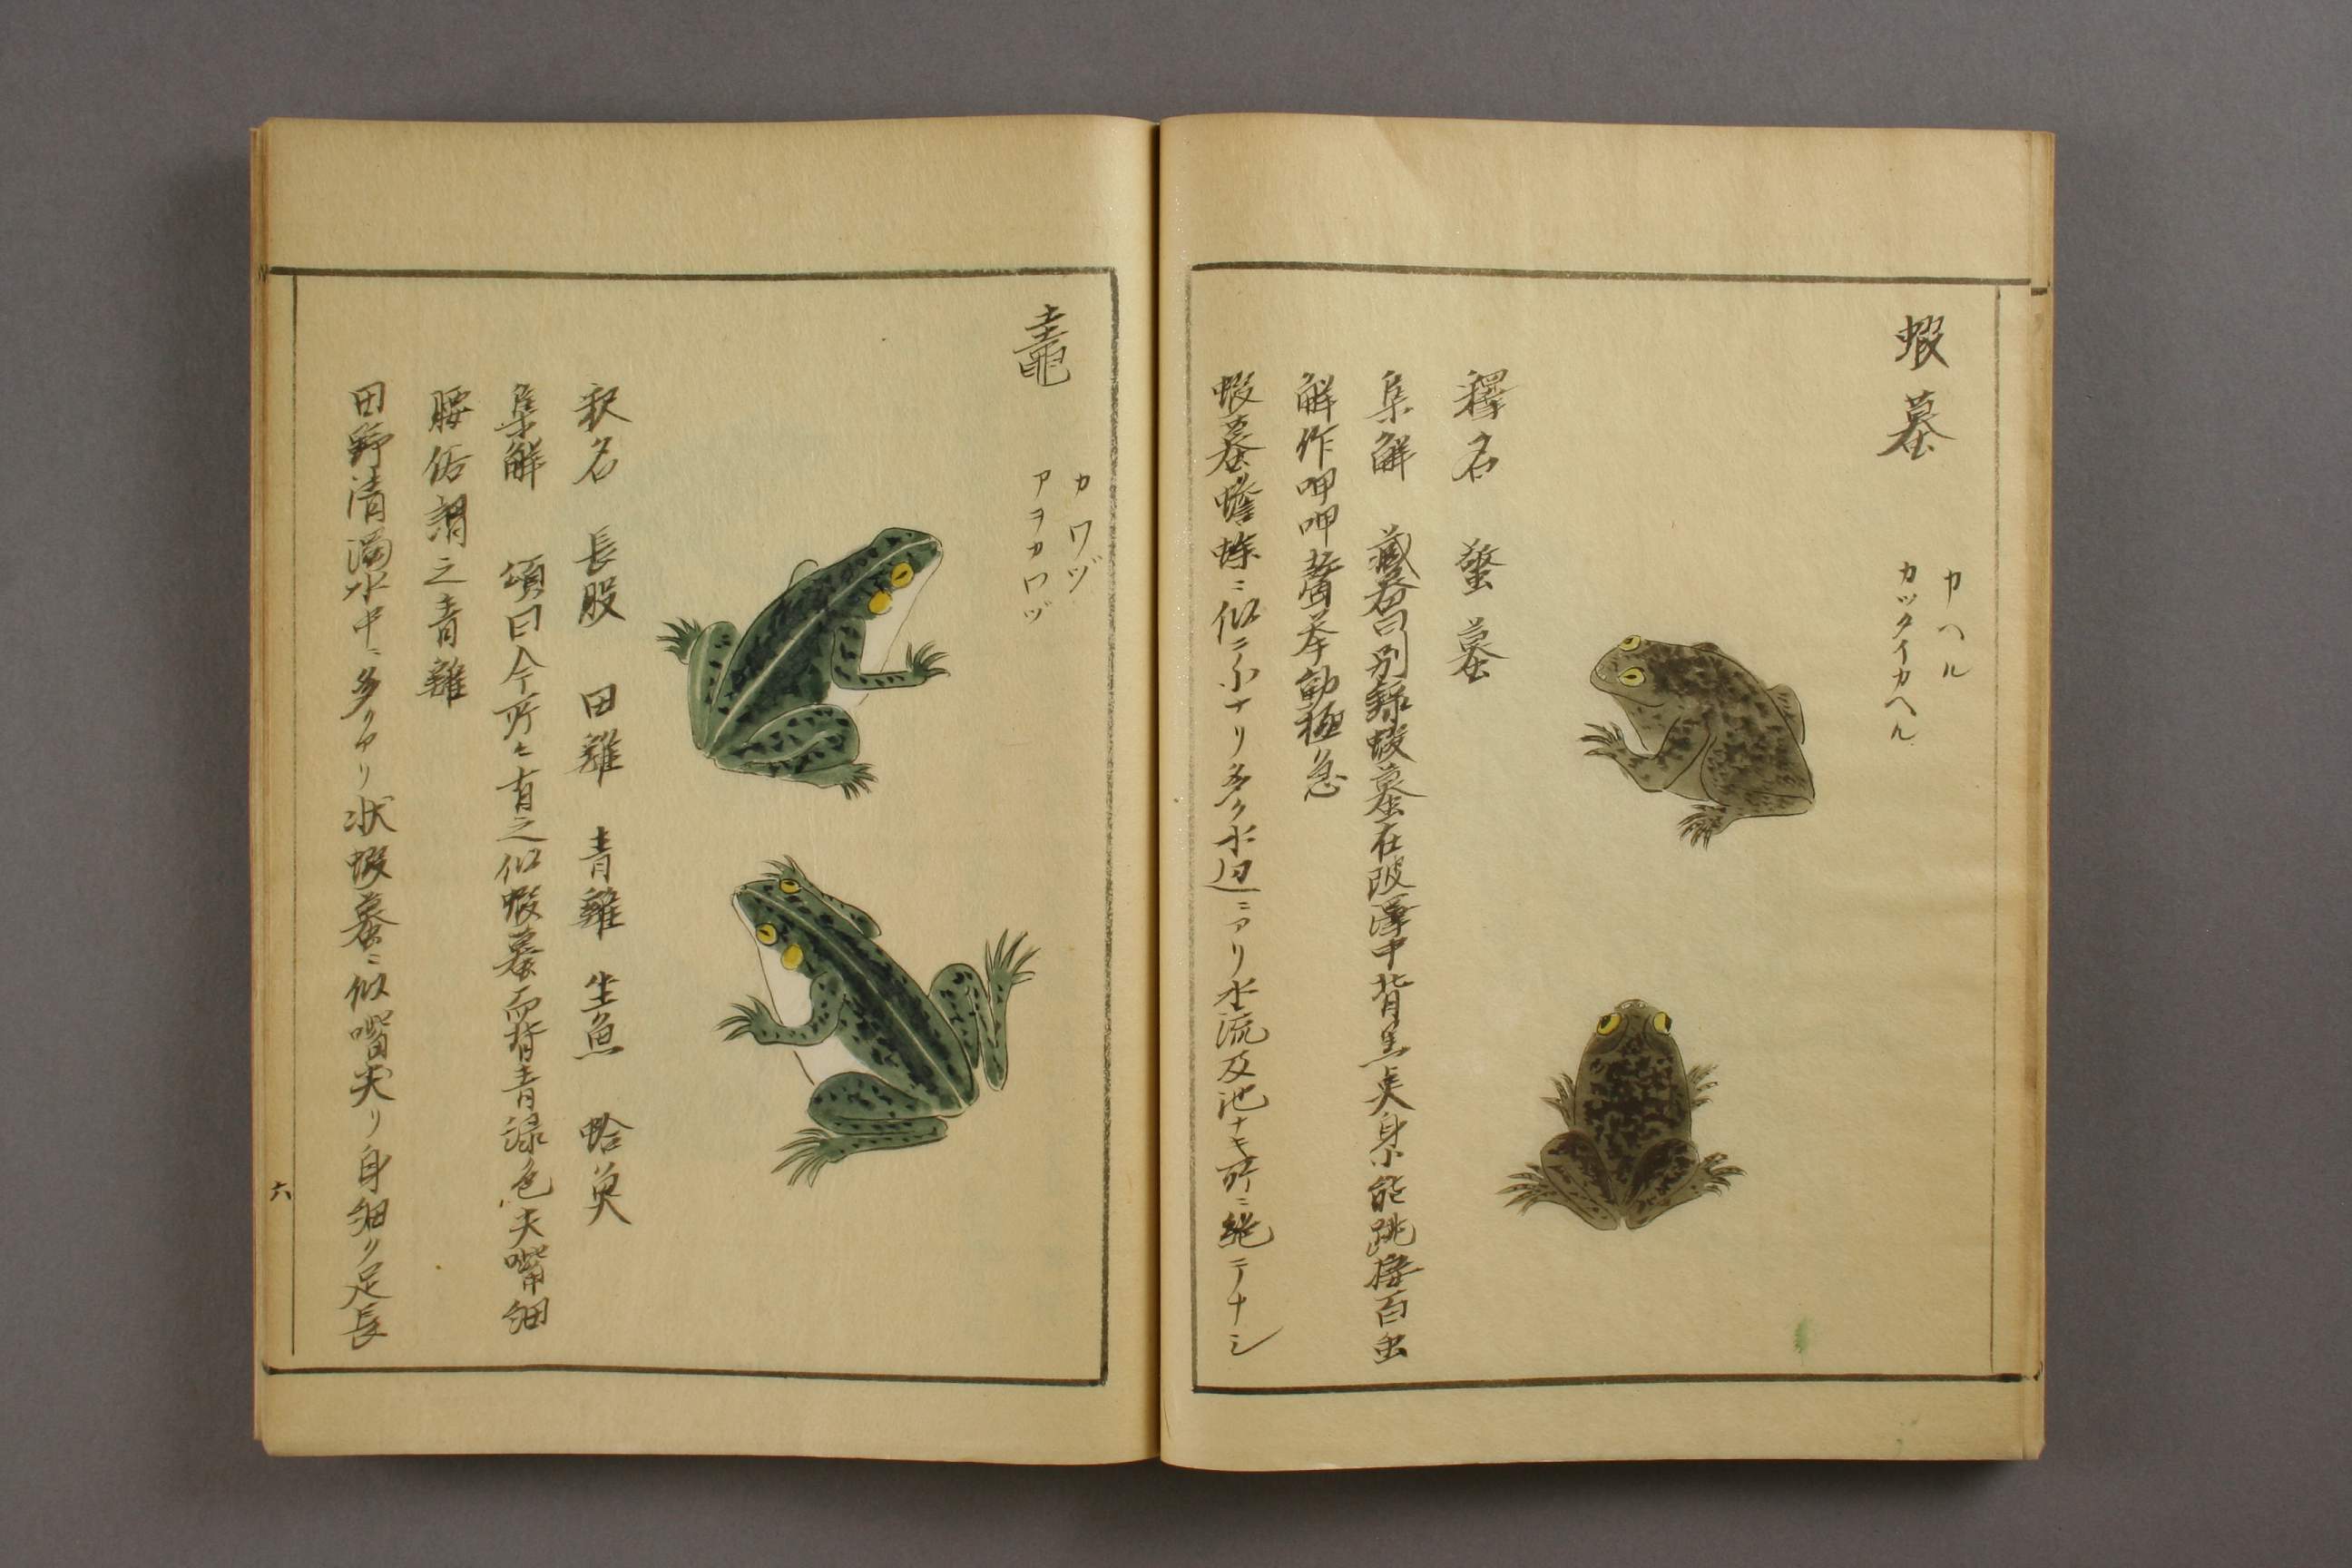 蝦蟇
カヘル
カッタイカヘル
釋名 蟼蟇
集解 藏器曰別録蝦蟇在陂澤中背黒点身小能跳接百虫
解作呷呷聲挙動極急
蝦蟇蟾蜍ニ似テ小ナリ多ク水辺ニアリ水流及池ナキ所ニ絶テナシ
鼃
カワヅ
アヲカワヅ
釈名 長股 田雞 青雞 坐魚 蛤魚
集解 頌曰今所々有之似蝦蟇而背青緑色尖嘴細
腰俗謂之青雞
田野清濁水中ニ多クアリ状蝦蟇ニ似嘴尖リ身細ク足長
六